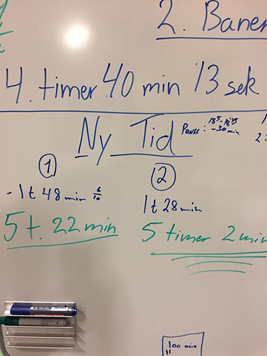 2. Baner
4. timer 40 min 13 sek
Ny Tid
Pause: -30 min
1
2
- 1t 48 min
1t 28 min
5 t. 22 min
5 timer 2 min
100 min